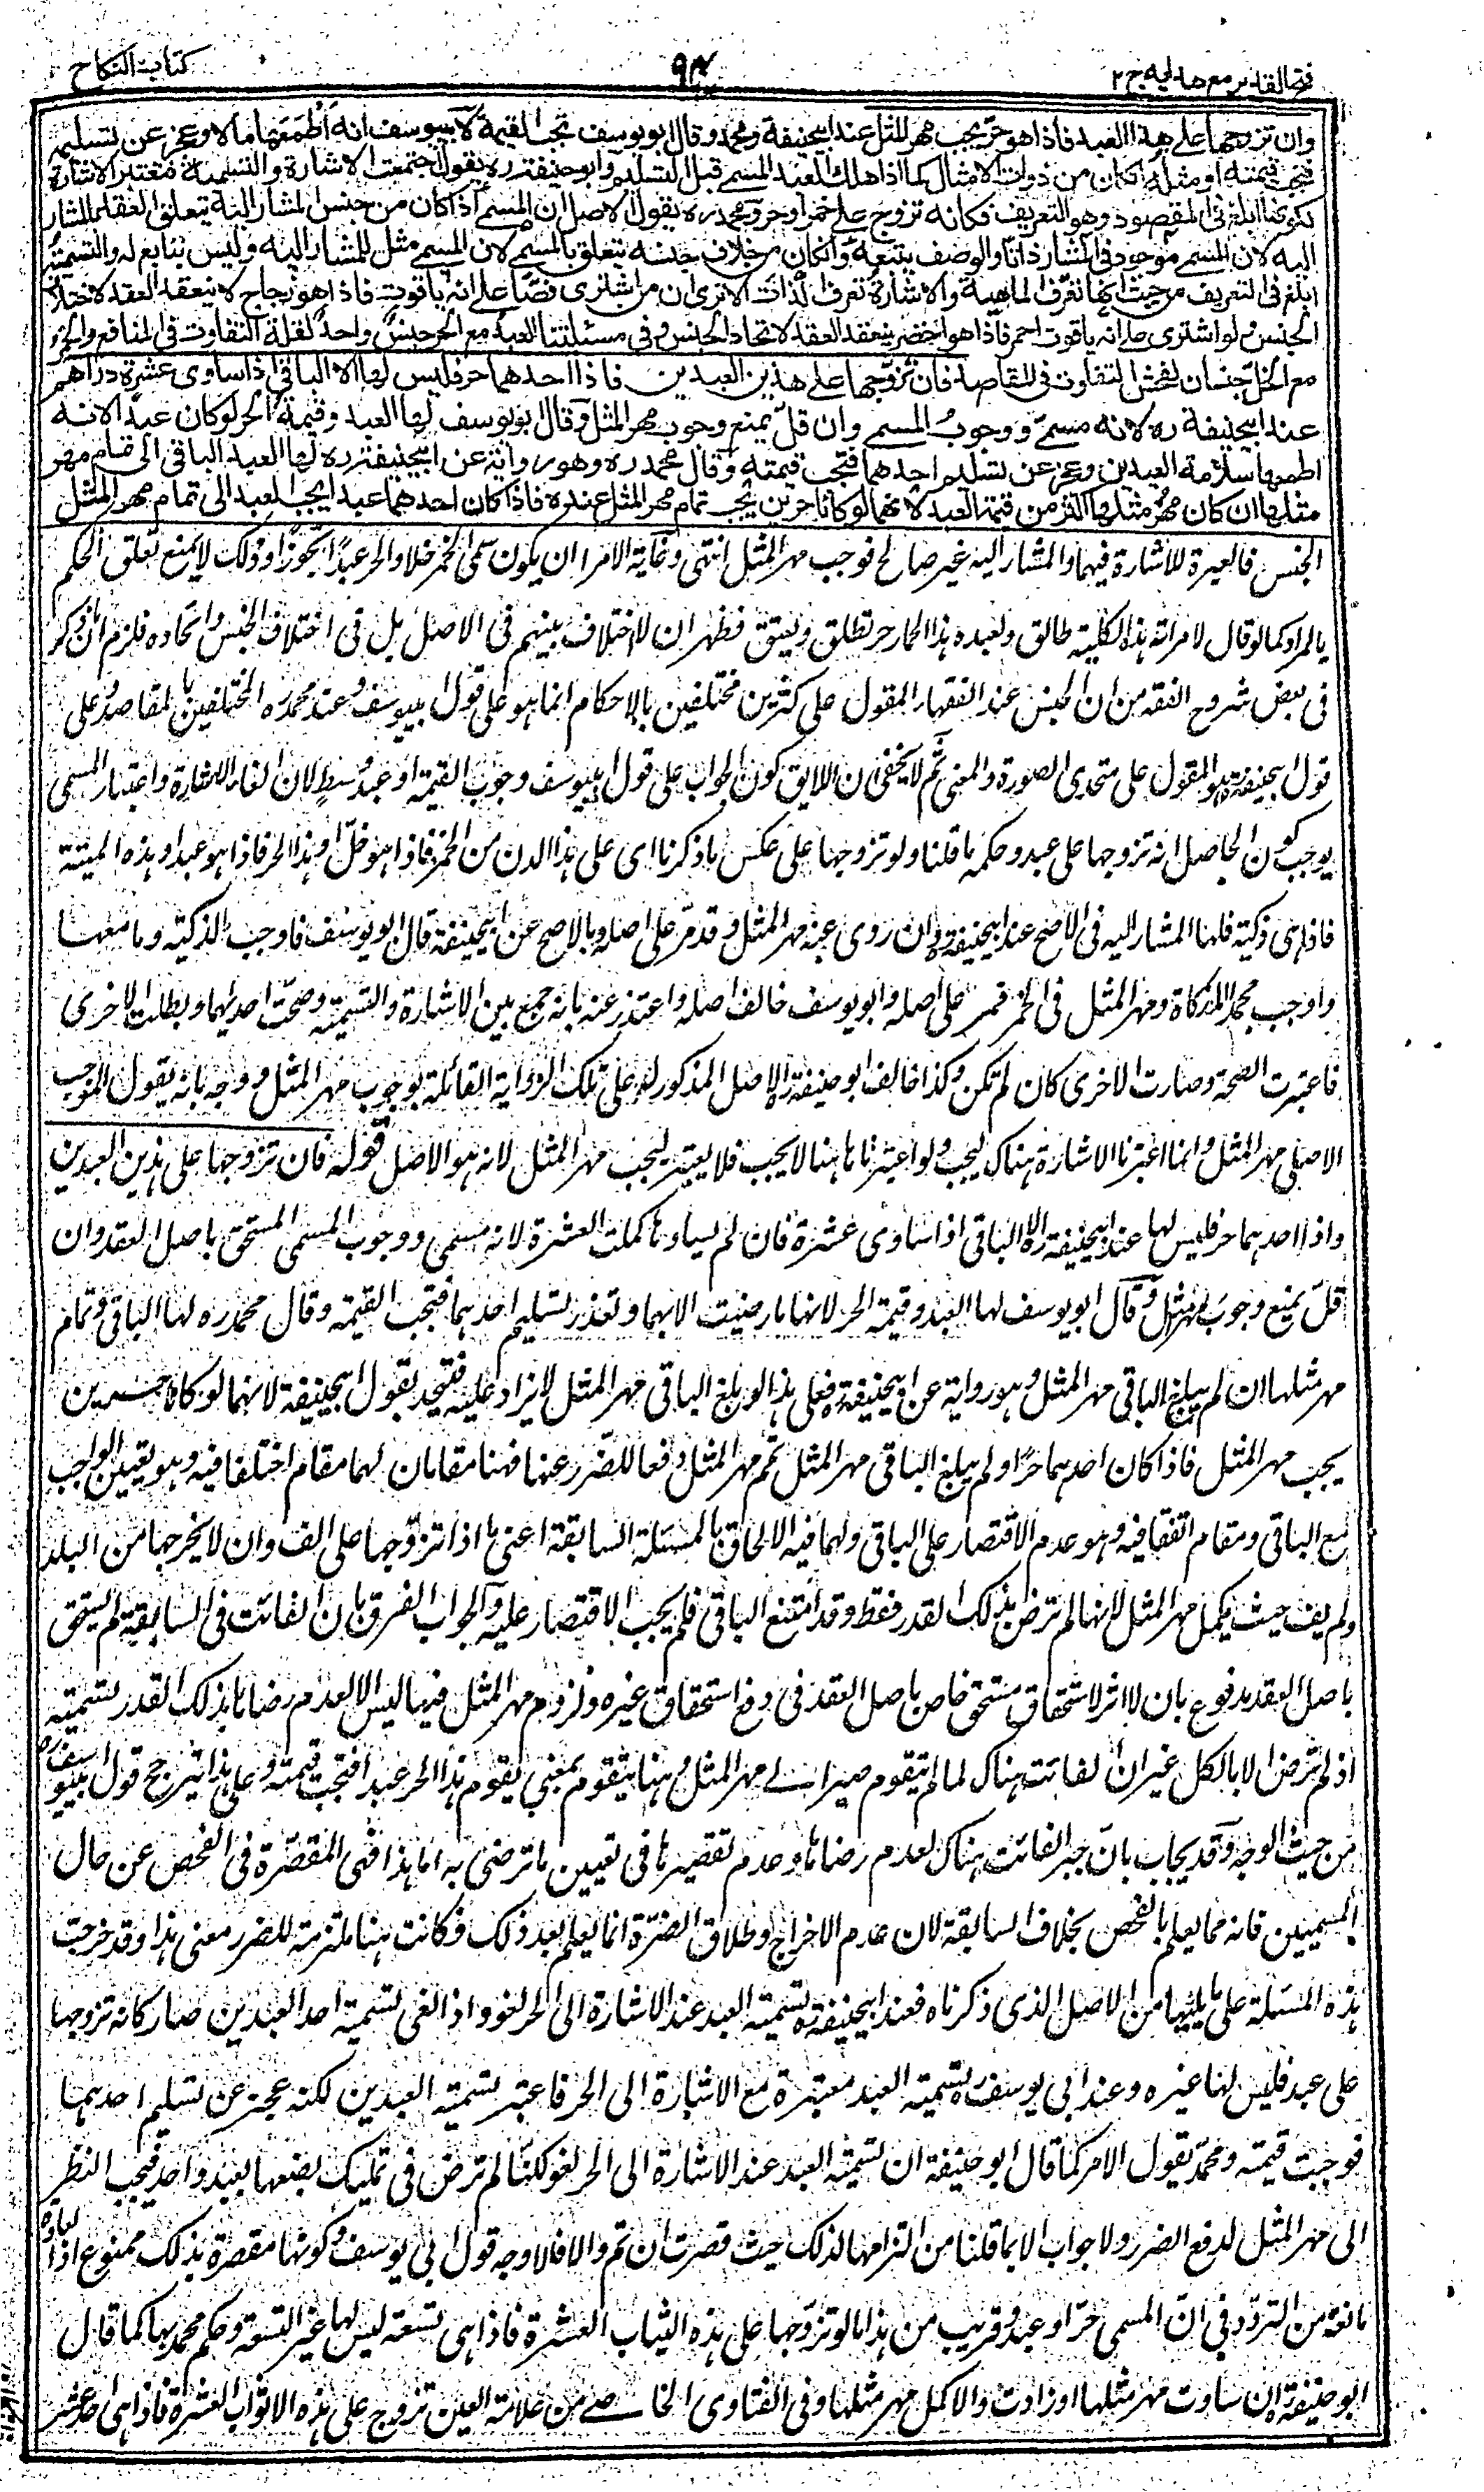 فتح القدير مع هدايه ج ٢
٩٤
كتاب النكاح
وان تزوجها على هذا العبد فاذا هو حر يجب مهر المثل عند ابيحنيفة ومحمد وقال ابو يوسف تجب القيمة لابييوسف انه اطمعها مالا وعجز عن تسليمه
فتجب قيمته او مثله ان كان من ذوات الامثال كما اذا هلك العبد المسمى قبل التسليم وابو حنيفة ره يقول اجتمعت الاشارة والتسمية فتعتبر الاشارة
لكونها ابلغ فى المقصود وهو التعريف فكانه تزوج على خمر او حر ومحمد ره يقول الاصل ان المسمى اذا كان من جنس المشار اليه يتعلق العقد بالمشار
اليه لان المسمى موجود فى المشار ذاتا والوصف يتبعه وان كان من خلاف جنسه يتعلق بالمسمى لان المسمى مثل للمشار اليه وليس بتابع له والتسمية
ابلغ فى التعريف من حيث انها تعرف الماهية والاشارة تعرف الذات الا ترى ان من اشترى فصا على انه ياقوت فاذا هو زجاج لا ينعقد العقد لاختلاف
الجنس ولو اشترى على انه ياقوت احمر فاذا هو اخضر ينعقد العقد لاتحاد الجنس وفى مسئلتنا العبد مع الحر جنس واحد لقلة التفاوت فى المنافع والخمر
مع الخل جنسان لفحش التفاوت فى المقاصد فان تزوجها على هذين العبدين فاذا احدهما حر فليس لها الا الباقى اذا ساوى عشرة دراهم
عند ابيحنيفة ره لانه مسمى ووجوب المسمى وان قل يمنع وجوب مهر المثل وقال ابو يوسف لها العبد وقيمة الحر لو كان عبدا لانه
اطمعها سلامة العبدين وعجز عن تسليم احدهما فتجب قيمته وقال محمد ره وهو رواية عن ابيحنيفة ره لها العبد الباقى الى تمام مهر
مثلها ان كان مهر مثلها اكثر من قيمة العبد لانهما لو كانا حرين يجب تمام مهر المثل عنده فاذا كان احدهما عبدا يجب العبد الى تمام مهر المثل
الجنس فالعبرة للاشارة فيهما والمشار اليه غير صالح فوجب مهر المثل انتهى وغاية الامر ان يكون سمى الخمر خلا والحر عبدا تجوزا وذلك لا يمنع تعلق الحكم
بالمراد كما لو قال لامراته هذه الكلبة طالق ولعبده هذا الحمار حر تطلق ويعتق فظهر ان لا اختلاف بينهم فى الاصل بل فى اختلاف الجنس واتحاده فلزم ان ما ذكر
فى بعض شروح الفقه من ان الجنس عند الفقهاء المقول على كثيرين مختلفين بالاحكام انما هو على قول ابييوسف وعند محمد ره المختلفين بالمقاصد وعلى
قول ابيحنيفة هو المقول على متحدى الصورة والمعنى ثم لا يخفى ان اللايق كون الجواب على قول ابييوسف وجوب القيمة او عبد وسط لان الغاء الاشارة واعتبار المسمى
يوجب كون الحاصل انه تزوجها على عبد وحكمه ما قلنا ولو تزوجها على عكس ما ذكرنا اى على هذا الدن من الخمر فاذا هو خل او هذا الحر فاذا هو عبد او هذه الميتة
فاذا هى ذكية فلها المشار اليه فى الاصح عند ابيحنيفة ره وان روى عنه مهر المثل وقد مر على اصله وبالاصح عن ابيحنيفة قال ابو يوسف فاوجب الذكية وما معها
واوجب محمد المذكاة ومهر المثل فى الخمر فمر على اصله وابو يوسف خالف اصله واعتذر عنه بانه جمع بين الاشارة والتسمية وصحت احديهما وبطلت الاخرى
فاعتبرت الصحة وصارت الاخرى كان لم تكن وكذا خالف ابو حنيفة ره الاصل المذكور له على تلك الرواية القائلة بوجوب مهر المثل ووجه بانه يقول الموجب
الاصلى مهر المثل وانما اعتبرنا الاشارة هناك ليجب ولو اعتبرناها هنا لا يجب فلا يعتبر ليجب مهر المثل لانه هو الاصل قوله فان تزوجها على هذين العبدين
واذا احدهما حر فليس لها عند ابيحنيفة ره الا الباقى اذا ساوى عشرة فان لم يساوها كملت العشرة لانه مسمى ووجوب المسمى المستحق باصل العقد وان
قل يمنع وجوب مهر المثل وقال ابو يوسف لها العبد وقيمة الحر لانها ما رضيت الا بهما وتعذر تسليم احدهما فتجب القيمة وقال محمد ره لها الباقى وتمام
مهر مثلها ان لم يبلغ الباقى مهر المثل وهو رواية عن ابيحنيفة ره فعلى هذا لو بلغ الباقى مهر المثل لا يزاد عليه فتتحد بقول ابيحنيفة لانهما لو كانا حرين
يجب مهر المثل فاذا كان احدهما حرا ولم يبلغ الباقى مهر المثل تمم مهر المثل دفعا للضرر عنها فهنا مقامان لهما مقام اختلفا فيه وهو تعيين الواجب
مع الباقى ومقام اتفقا فيه وهو عدم الاقتصار على الباقى ولهما فيه الالحاق بالمسئلة السابقة اعنى ما اذا تزوجها على الف وان لا يخرجها من البلد
ولم يف حيث يكمل مهر المثل لانها لم ترض بذلك القدر فقط وقد امتنع الباقى فلم يجب الاقتصار عليه والجواب الفرق بان الفائت فى السابقة لم يستحق
باصل العقد مدفوع بان لا اثر لاستحقاق مستحق خاص باصل العقد فى دفع استحقاق غيره ولزوم مهر المثل فيها ليس الا لعدم رضاها بذلك القدر تسميته
اذ لم ترض الا بالكل غير ان الفائت هناك لما لم يتقوم صير الى مهر المثل وهنا يتقوم بمعنى تقوم هذا الحر عبدا فتجب قيمته وعلى هذا يترجح قول ابييوسف ره
من حيث الوجه وقد يجاب بان جبر الفائت هناك لعدم رضاها وعدم تقصيرها فى تعيين ما ترضى به اما هذا فهى المقصرة فى الفحص عن حال
المسميين فانه مما يعلم بالفحص بخلاف السابقة لان عدم الاخراج وطلاق الضرة انما يعلم بعد ذلك فكانت هنا ملتزمة للضرر معنى هذا وقد خرجت
هذه المسئلة على ما يليها من الاصل الذى ذكرناه فعند ابيحنيفة ره تسمية العبد عند الاشارة الى الحر لغو واذا لغى تسمية احد العبدين صار كانه تزوجها
على عبد فليس لها غيره وعند ابى يوسف تسمية العبد معتبرة مع الاشارة الى الحر فاعتبر تسمية العبدين لكنه عجز عن تسليم احدهما
فوجبت قيمته ومحمد يقول الامر كما قال ابو حنيفة ان تسمية العبد عند الاشارة الى الحر لغو لكنها لم ترض فى تمليك بضعها بعبد واحد فيجب النظر
الى مهر المثل لدفع الضرر ولا جواب الا بما قلنا من التزامها لذلك حيث قصرت ان تم والا فالاوجه قول ابى يوسف وكونها مقصرة بذلك ممنوع اذ العادة
مانعة من التردد فى ان المسمى حر او عبد وقريب من هذا ما لو تزوجها على هذه الثياب العشرة فاذا هى تسعة ليس لها غير التسعة وحكم محمد بها كما قال
ابو حنيفة ان ساوت مهر مثلها او زادت والا كمل مهر مثلها وفى الفتاوى الخاصى من علامة العين تزوج على هذه الاثواب العشرة فاذا هى احد عشر